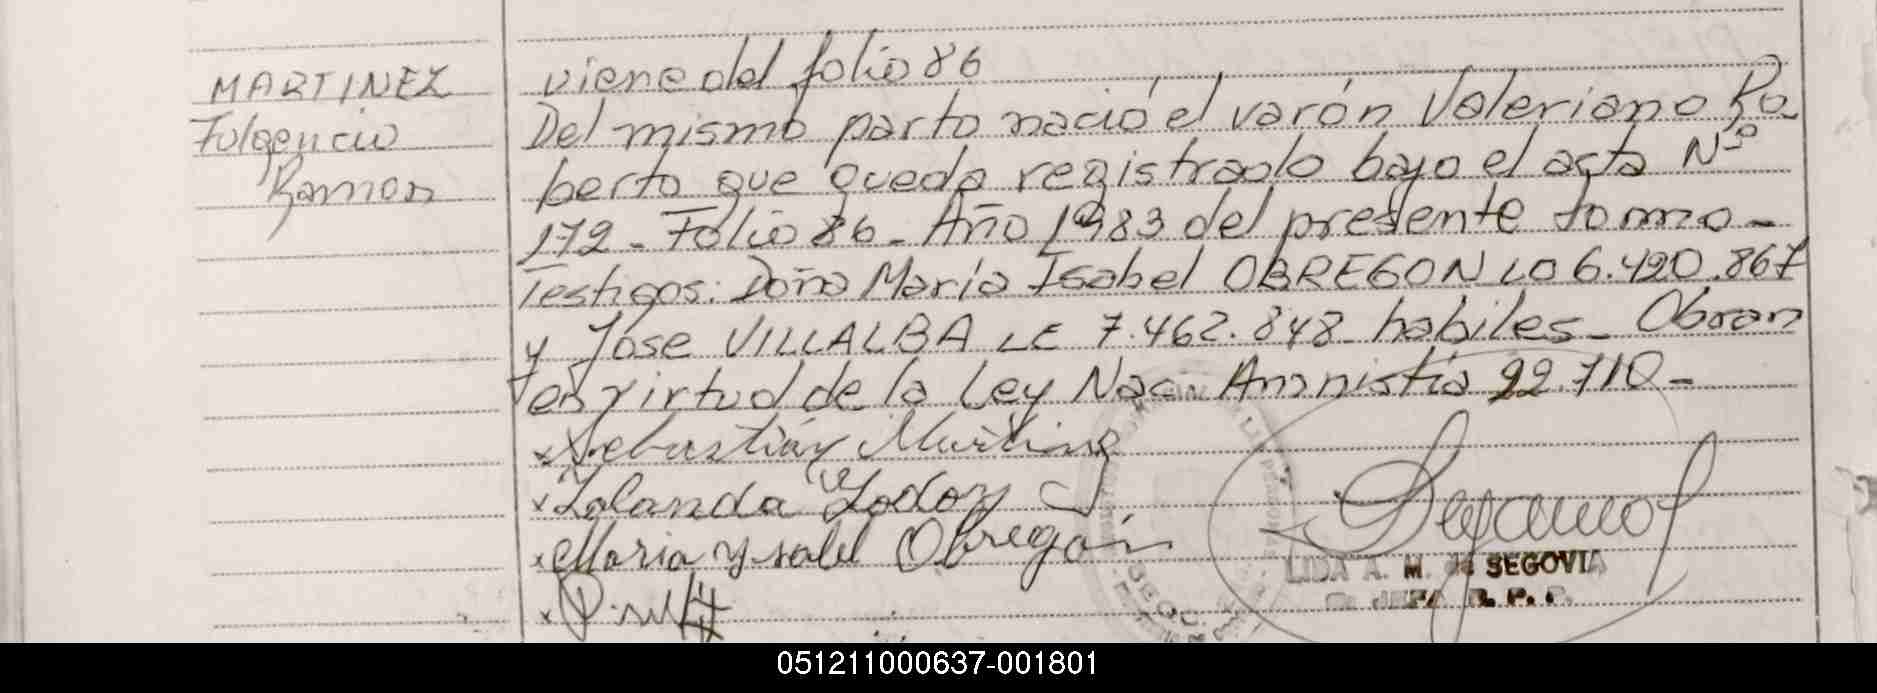 MARTINEZ
Fulgencio
Ramon
viene del folio 86
Del mismo parto nació el varón Valeriano Ro
berto que queda registrado bajo el acta Nº
172 - Folio 86 - Año 1983 del presente tomo -
Testigos: Doña María Isabel OBREGON LC 6.420.867
y Jose VILLALBA LE 7.462.848 habiles - Obran
en virtud de la Ley Nac. Amnistía 22.710 -
x Sebastián Martinez
x Yolanda Godoy
x Maria Ysabel Obregón
LIDA A. M. de SEGOVIA
JEFA R. P. P.
051211000637-001801